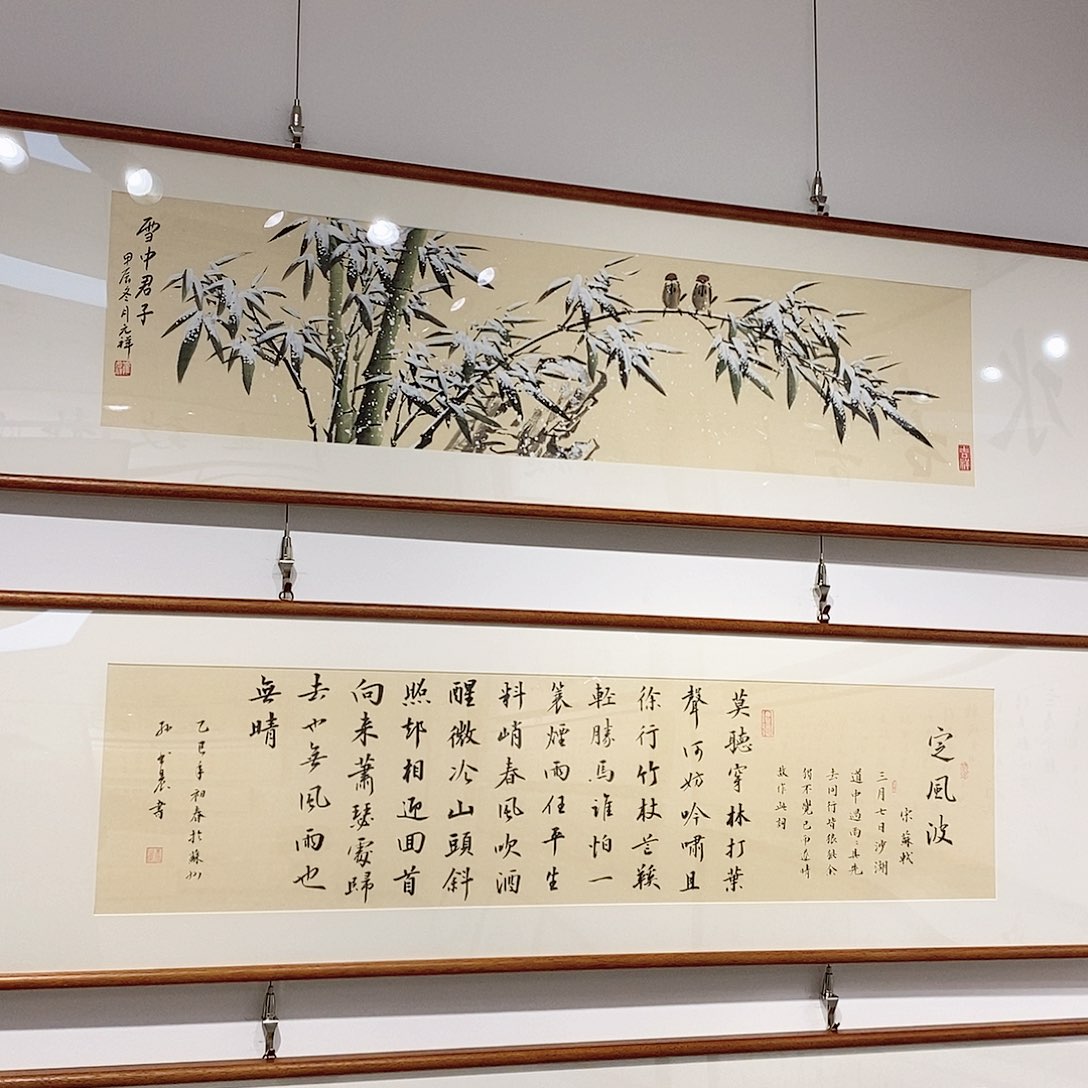 雪中君子
甲辰冬月元祥
吉祥
定風波
宋蘇軾
三月七日沙湖
道中遇雨雨具先
去同行皆狼狽余
獨不覺已而遂晴
故作此詞
莫聽穿林打葉
聲何妨吟嘯且
徐行竹杖芒鞵
軽勝馬誰怕一
蓑煙雨任平生
料峭春風吹酒
醒微冷山頭斜
照却相迎回首
向来蕭瑟處歸
去也無風雨也
無晴
乙巳年初春於蘇州
孫書晨書